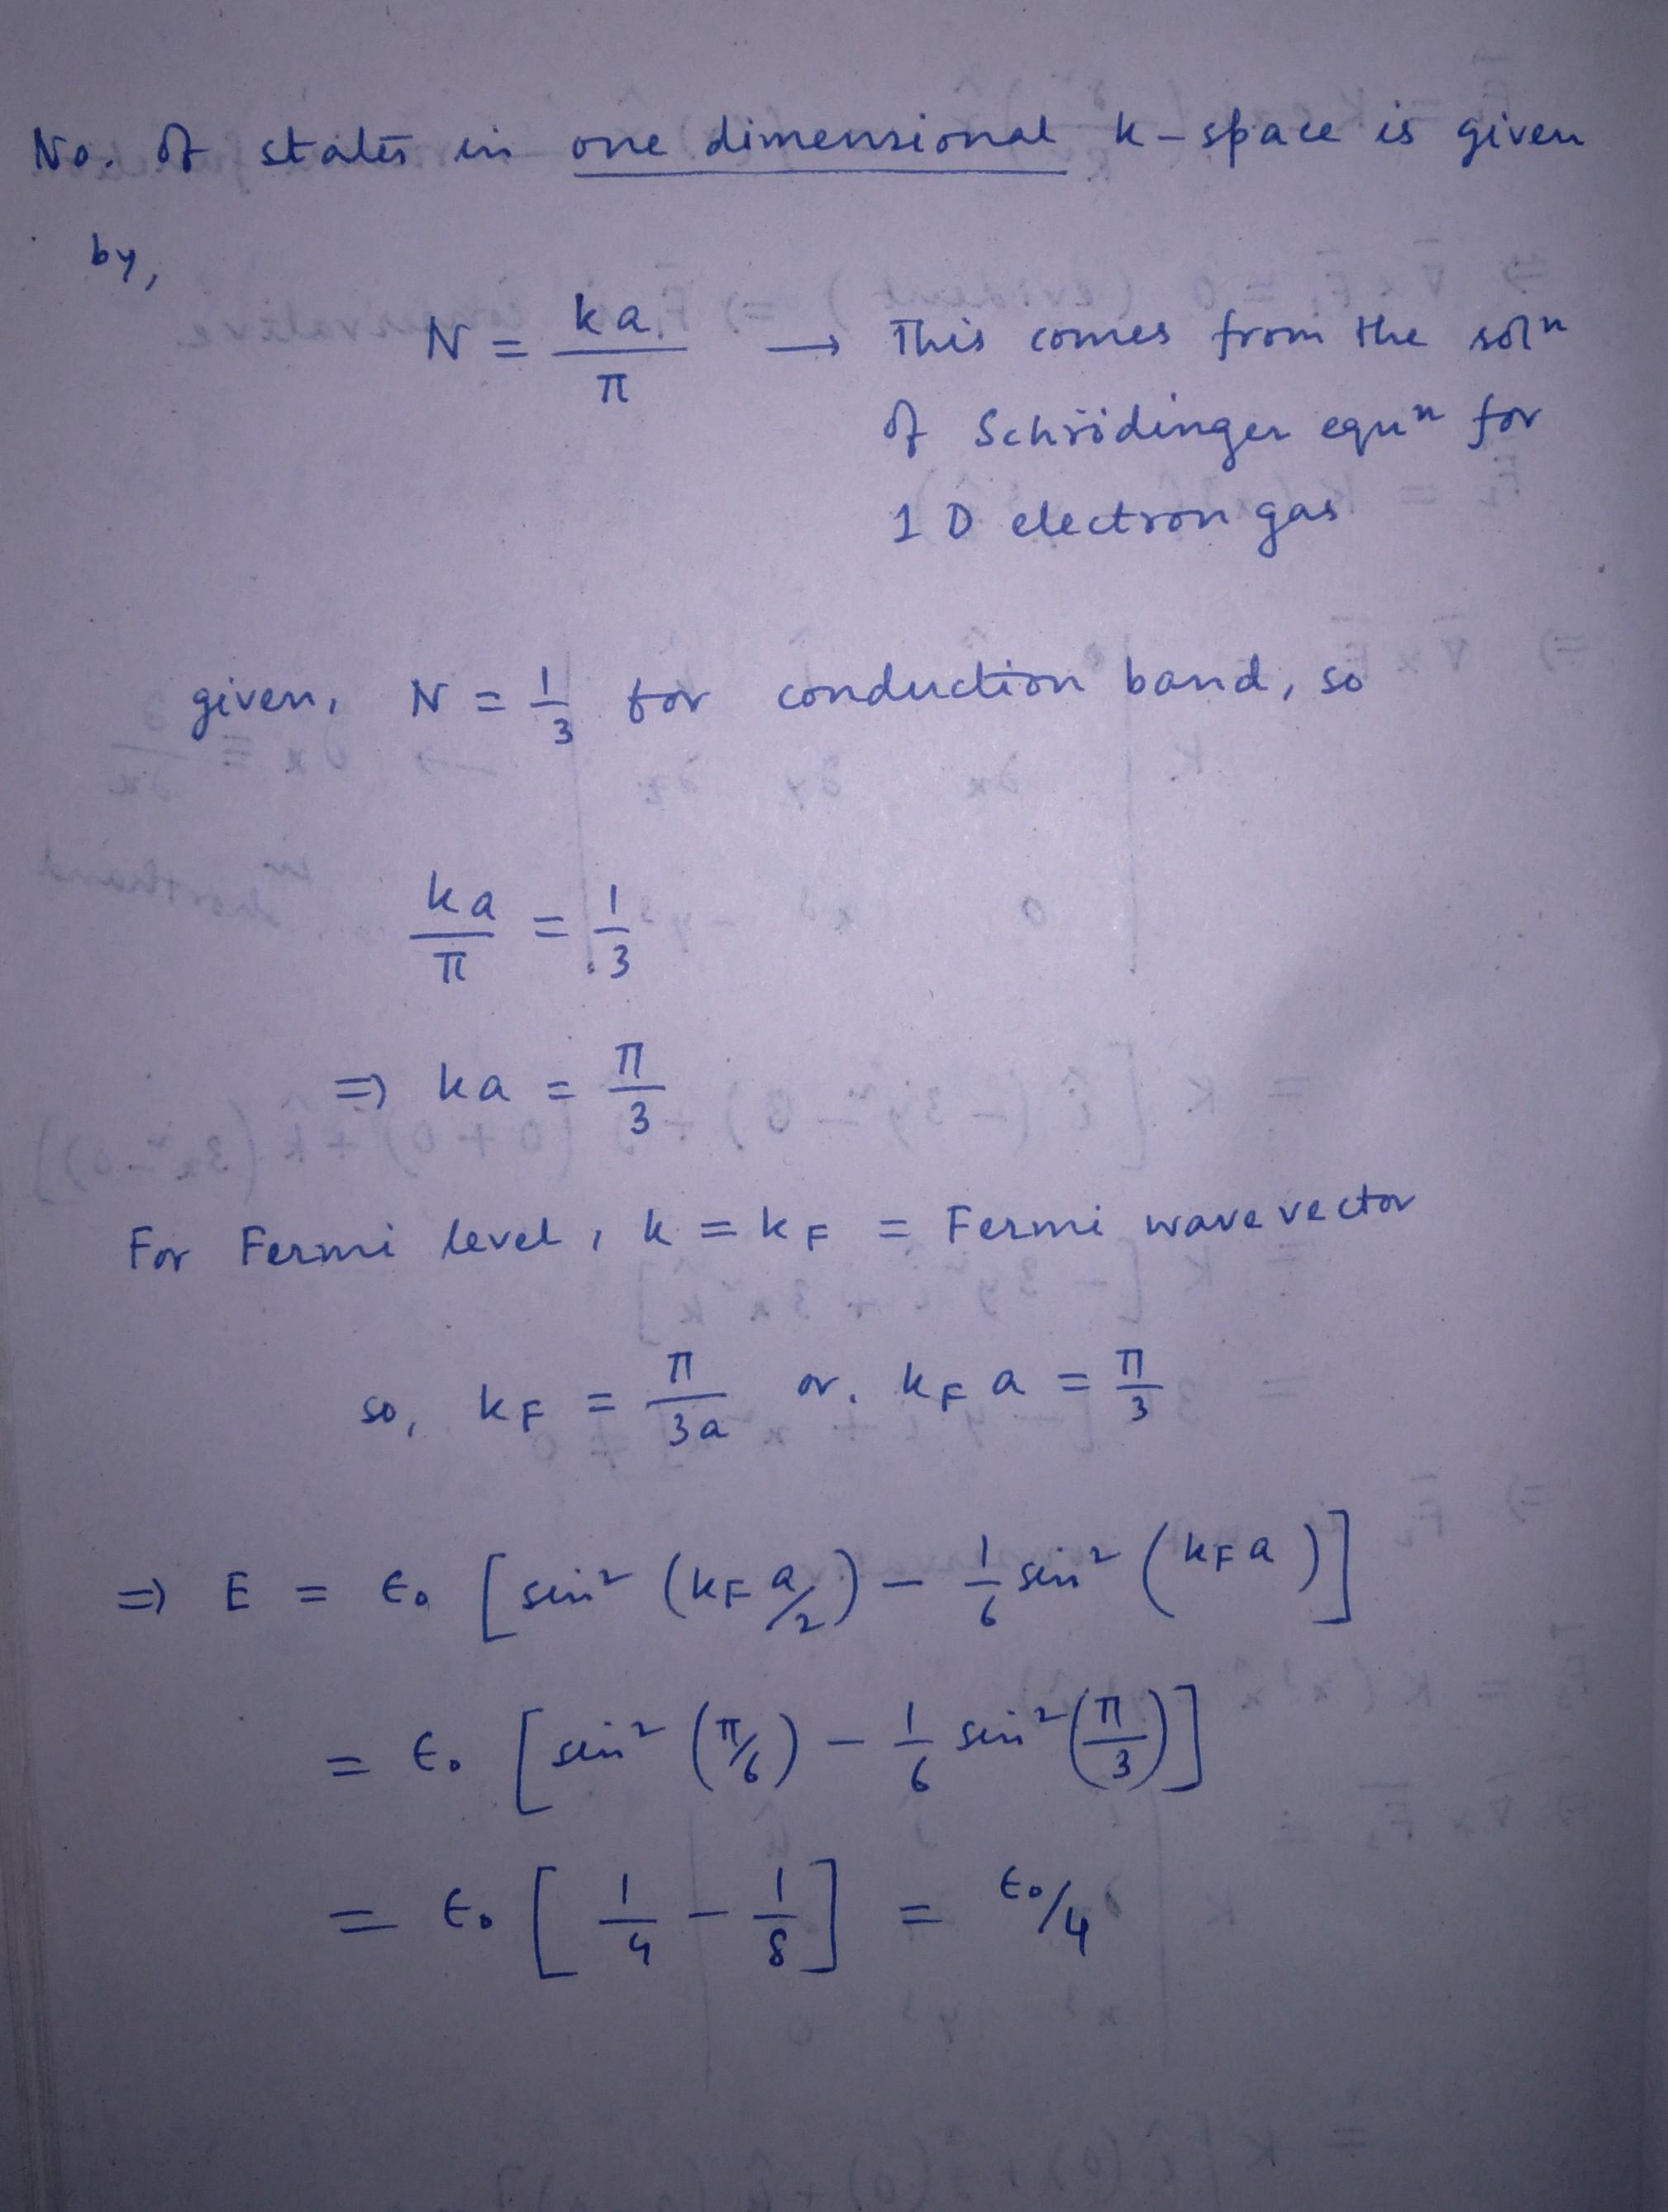 No. of states in one dimensional k-space is given
by,
N = ka/π → This comes from the solⁿ
of Schrödinger equⁿ for
1 D electron gas
given, N = 1/3 for conduction band, so
ka/π = 1/3
⇒ ka = π/3
For Fermi level, k = k_F = Fermi wave vector
so, k_F = π/3a or, k_F a = π/3
⇒ E = ϵ₀ [sin² (k_F a/2) − 1/6 sin² (k_F a)]
= ϵ₀ [sin² (π/6) − 1/6 sin² (π/3)]
= ϵ₀ [1/4 − 1/8] = ϵ₀/4